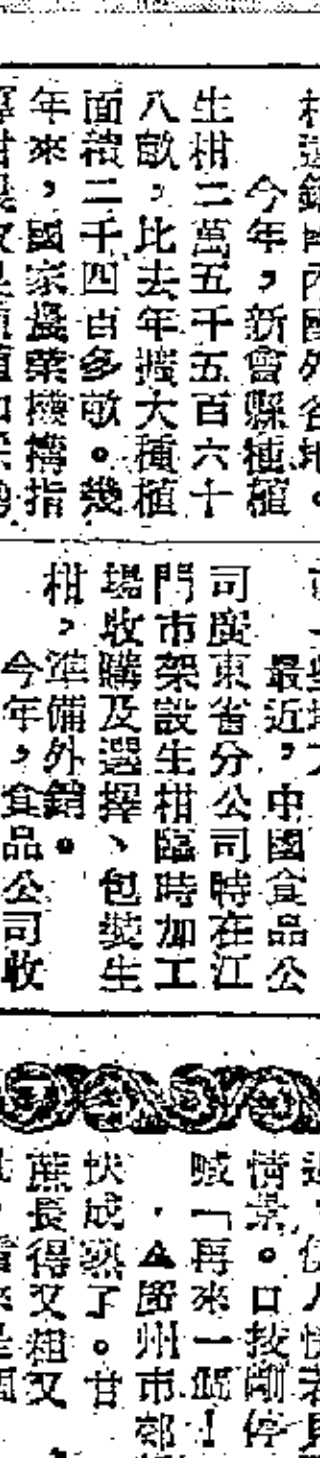 柑運銷國內國外各地。
今年，新會縣種植
生柑二萬五千五百六十
八畝，比去年擴大種植
面積二千四百多畝。幾
年來，國家農業機構指
最近，中國食品公
司廣東省分公司時在江
門市架設生柑臨時加工
場收購及選擇、包裝生
柑，準備外銷。
今年，食品公司收
情景。口技剛停
喊「再來一個！
▲廣州市郊
伏成熟了。甘
蔗長得又粗又